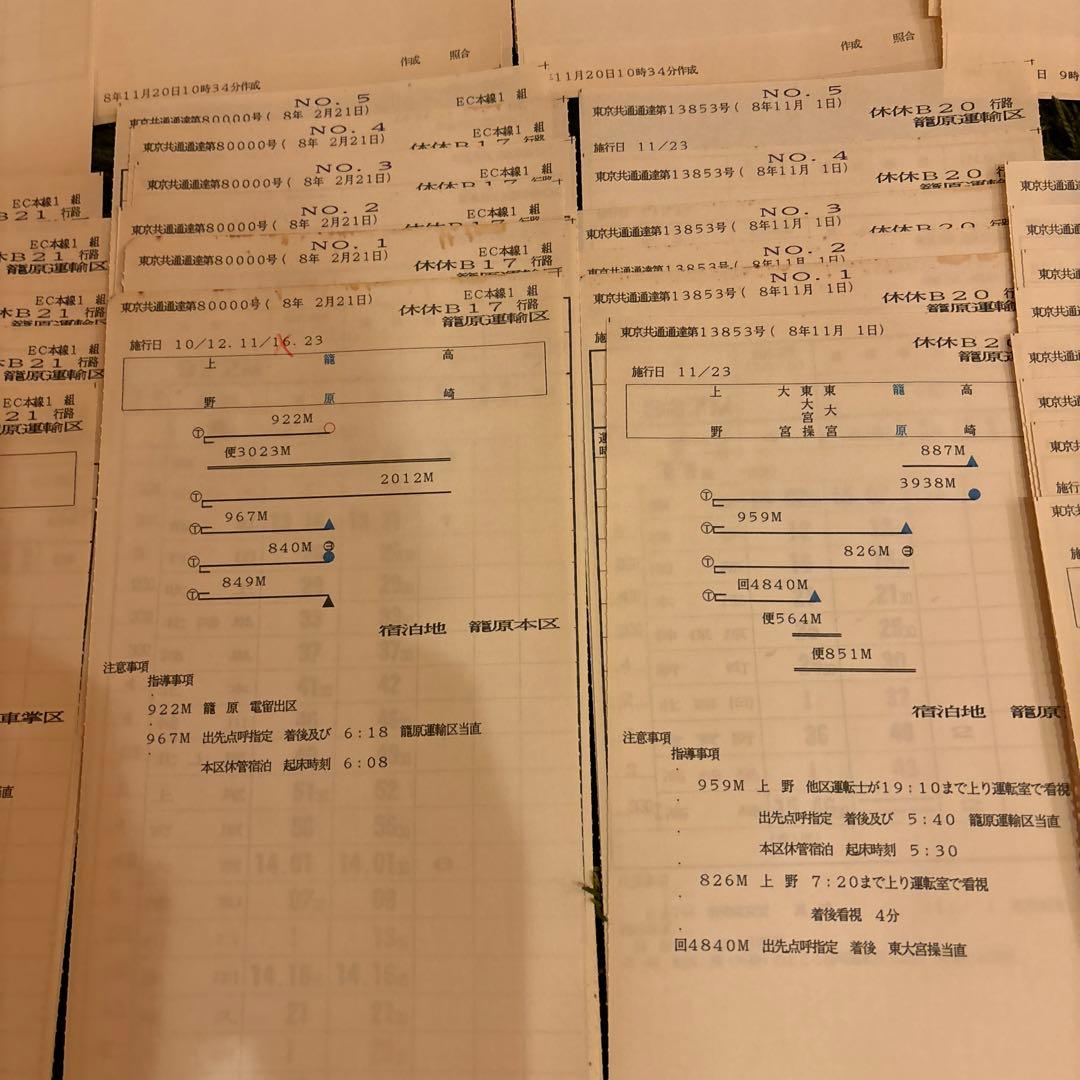 作成 照合
8年11月20日10時34分作成
NO. 5
EC本線1 組
東京共通通達第80000号( 8年 2月21日)
NO. 4
EC本線1 組
東京共通通達第80000号( 8年 2月21日)
休休B17
NO. 3
EC本線1 組
東京共通通達第80000号( 8年 2月21日)
休休B17
NO. 2
EC本線1 組
東京共通通達第80000号( 8年 2月21日)
NO. 1
EC本線1 組
東京共通通達第80000号( 8年 2月21日)
休休B17 行路
EC本線1 組
東京共通通達第80000号( 8年 2月21日)
休休B17 行路
籠原運輸区
施行日 10/12. 11/16. 23
上野 籠原 高崎
922M
便3023M
2012M
967M
840M
849M
宿泊地 籠原本区
注意事項
指導事項
922M 籠 原 電留出区
967M 出先点呼指定 着後及び 6:18 籠原運輸区当直
本区休管宿泊 起床時刻 6:08
作成 照合
11月20日10時34分作成
NO. 5
東京共通通達第13853号( 8年11月 1日)
休休B20 行路
籠原運輸区
施行日 11/23
NO. 4
東京共通通達第13853号( 8年11月 1日)
休休B20
NO. 3
東京共通通達第13853号( 8年11月 1日)
休休B20
NO. 2
東京共通通達第13853号( 8年11月 1日)
NO. 1
東京共通通達第13853号( 8年11月 1日)
休休B20 行路
籠原運輸区
東京共通通達第13853号( 8年11月 1日)
休休B20
施行日 11/23
上野 大宮 東大宮操 東大宮 籠原 高崎
887M
3938M
959M
826M
回4840M
便564M
便851M
宿泊地 籠原
注意事項
指導事項
959M 上 野 他区運転士が19:10まで上り運転室で看視
出先点呼指定 着後及び 5:40 籠原運輸区当直
本区休管宿泊 起床時刻 5:30
826M 上 野 7:20まで上り運転室で看視
着後看視 4分
回4840M 出先点呼指定 着後 東大宮操当直
EC本線1 組
B21 行路
EC本線1 組
B21 行路
籠原運輸区
EC本線1 組
B21 行路
EC本線1 組
B21 行路
籠原運輸区
EC本線1 組
21 行路
原運輸区
車掌区
東京共通通達第
東京共通通達
東京共通通達第
東京共通通達第
東京共通通達
東京共
施行
東京